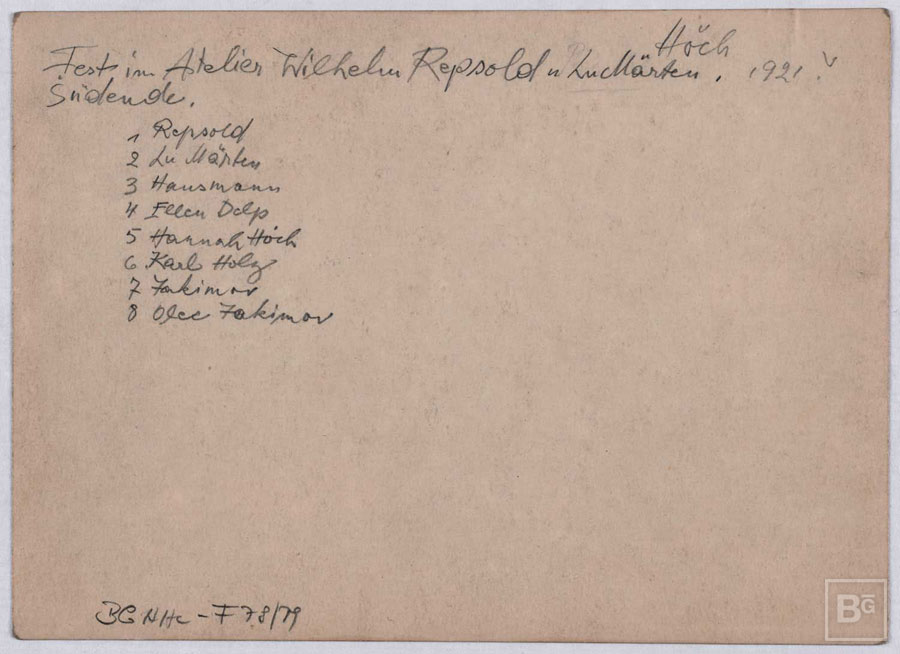 Höch
Fest im Atelier Wilhelm Repsold u Lu Märten. 1921?
Südende.
1 Repsold
2 Lu Märten
3 Hausmann
4 Ellen Delp
5 Hannah Höch
6 Karl Holz
7 Jakimov
8 Jakimov
BG NHc - F 78/79
BG